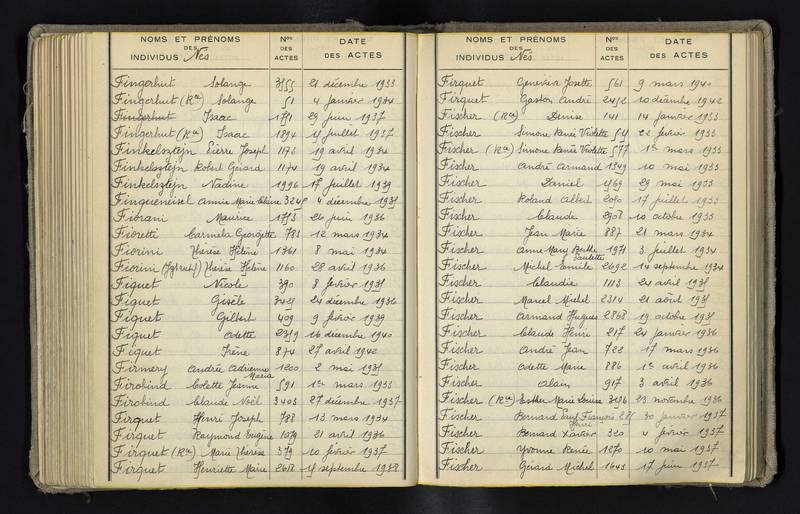 NOMS ET PRÉNOMS DES INDIVIDUS Nés Nos DES ACTES DATE DES ACTES
Fingerhut Solange 3155 21 décembre 1933
Fingerhut (Ron) Solange 51 4 janvier 1934
Fingerhut Isaac 1771 29 juin 1937
Fingerhut (Ron) Isaac 1894 15 juillet 1937
Finkelsztejn Pierre Joseph 1173 19 avril 1934
Finkelsztejn Robert Gérard 1174 19 avril 1934
Finkelsztejn Nadine 1996 15 juillet 1939
Finqueneisel Annie Marie Hélène 3248 4 décembre 1935
Fiorani Maurice 1753 26 juin 1936
Fioretti Carmela Georgette 783 12 mars 1934
Fiorini Thérèse Hélène 1361 8 mai 1934
Fiorini Thérèse Hélène 1160 28 avril 1936
Fiquet Nicole 390 8 février 1935
Fiquet Gisèle 3425 24 décembre 1936
Fiquet Gilbert 409 9 février 1939
Fiquet Odette 2359 16 décembre 1940
Fiquet Irène 874 27 avril 1942
Firmery Andrée Adrienne Maria 1200 2 mai 1935
Firobind Colette Jeanne 591 1er mars 1933
Firobind Claude Noël 3403 27 décembre 1937
Firquet Henri Joseph 788 13 mars 1934
Firquet Raymond Eugène 1079 21 avril 1936
Firquet (Ron) Marie Thérèse 379 10 février 1937
Firquet Henriette Marie 2658 15 septembre 1938
NOMS ET PRÉNOMS DES INDIVIDUS Nés Nos DES ACTES DATE DES ACTES
Firquet Geneviève Josette 561 9 mars 1940
Firquet Gaston André 2452 10 décembre 1942
Fischer (Ron) Denise 141 14 janvier 1933
Fischer Simone Renée Violette 514 22 février 1933
Fischer (Ron) Simone Renée Violette 577 1er mars 1933
Fischer André Armand 1349 10 mai 1933
Fischer Daniel 1569 29 mai 1933
Fischer Roland Albert 2090 17 juillet 1933
Fischer Claude 2908 10 octobre 1933
Fischer Jean Marie 887 21 mars 1934
Fischer Anne Mary Berthe 1971 3 juillet 1934
Fischer Michel Emile Paulette 2692 14 septembre 1934
Fischer Claudie 1113 24 avril 1935
Fischer Marcel Michel 2314 21 août 1935
Fischer Armand Hugues 2868 19 octobre 1935
Fischer Claude Henri 217 24 janvier 1936
Fischer André Jean 722 17 mars 1936
Fischer Odette Marie 886 1er avril 1936
Fischer Alain 917 3 avril 1936
Fischer (Ron) Esther Marie Louise 3096 23 novembre 1936
Fischer Bernard Paul François 285 30 janvier 1937
Fischer Bernard Xavier Henri 320 4 février 1937
Fischer Yvonne Renée 1270 10 mai 1937
Fischer Gérard Michel 1643 17 juin 1937